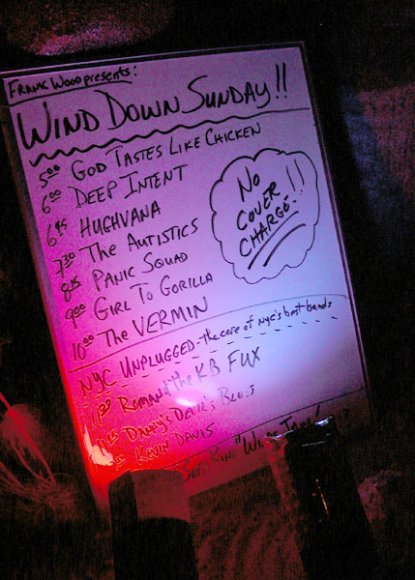 Frank Wood presents:
WIND DOWN SUNDAY!!
5:00 GOD TASTES LIKE CHICKEN
6:00 DEEP INTENT
6:45 HUGHVANA
7:30 The AUTISTICS
8:15 PANIC SQUAD
9:00 GIRL TO GORILLA
10:00 The VERMIN
NO
COVER
CHARGE!!
NYC UNPLUGGED - the core of nyc's best bands
Roman & the KB FUX
Danny's Devil's Blues
KEVIN DAVIS